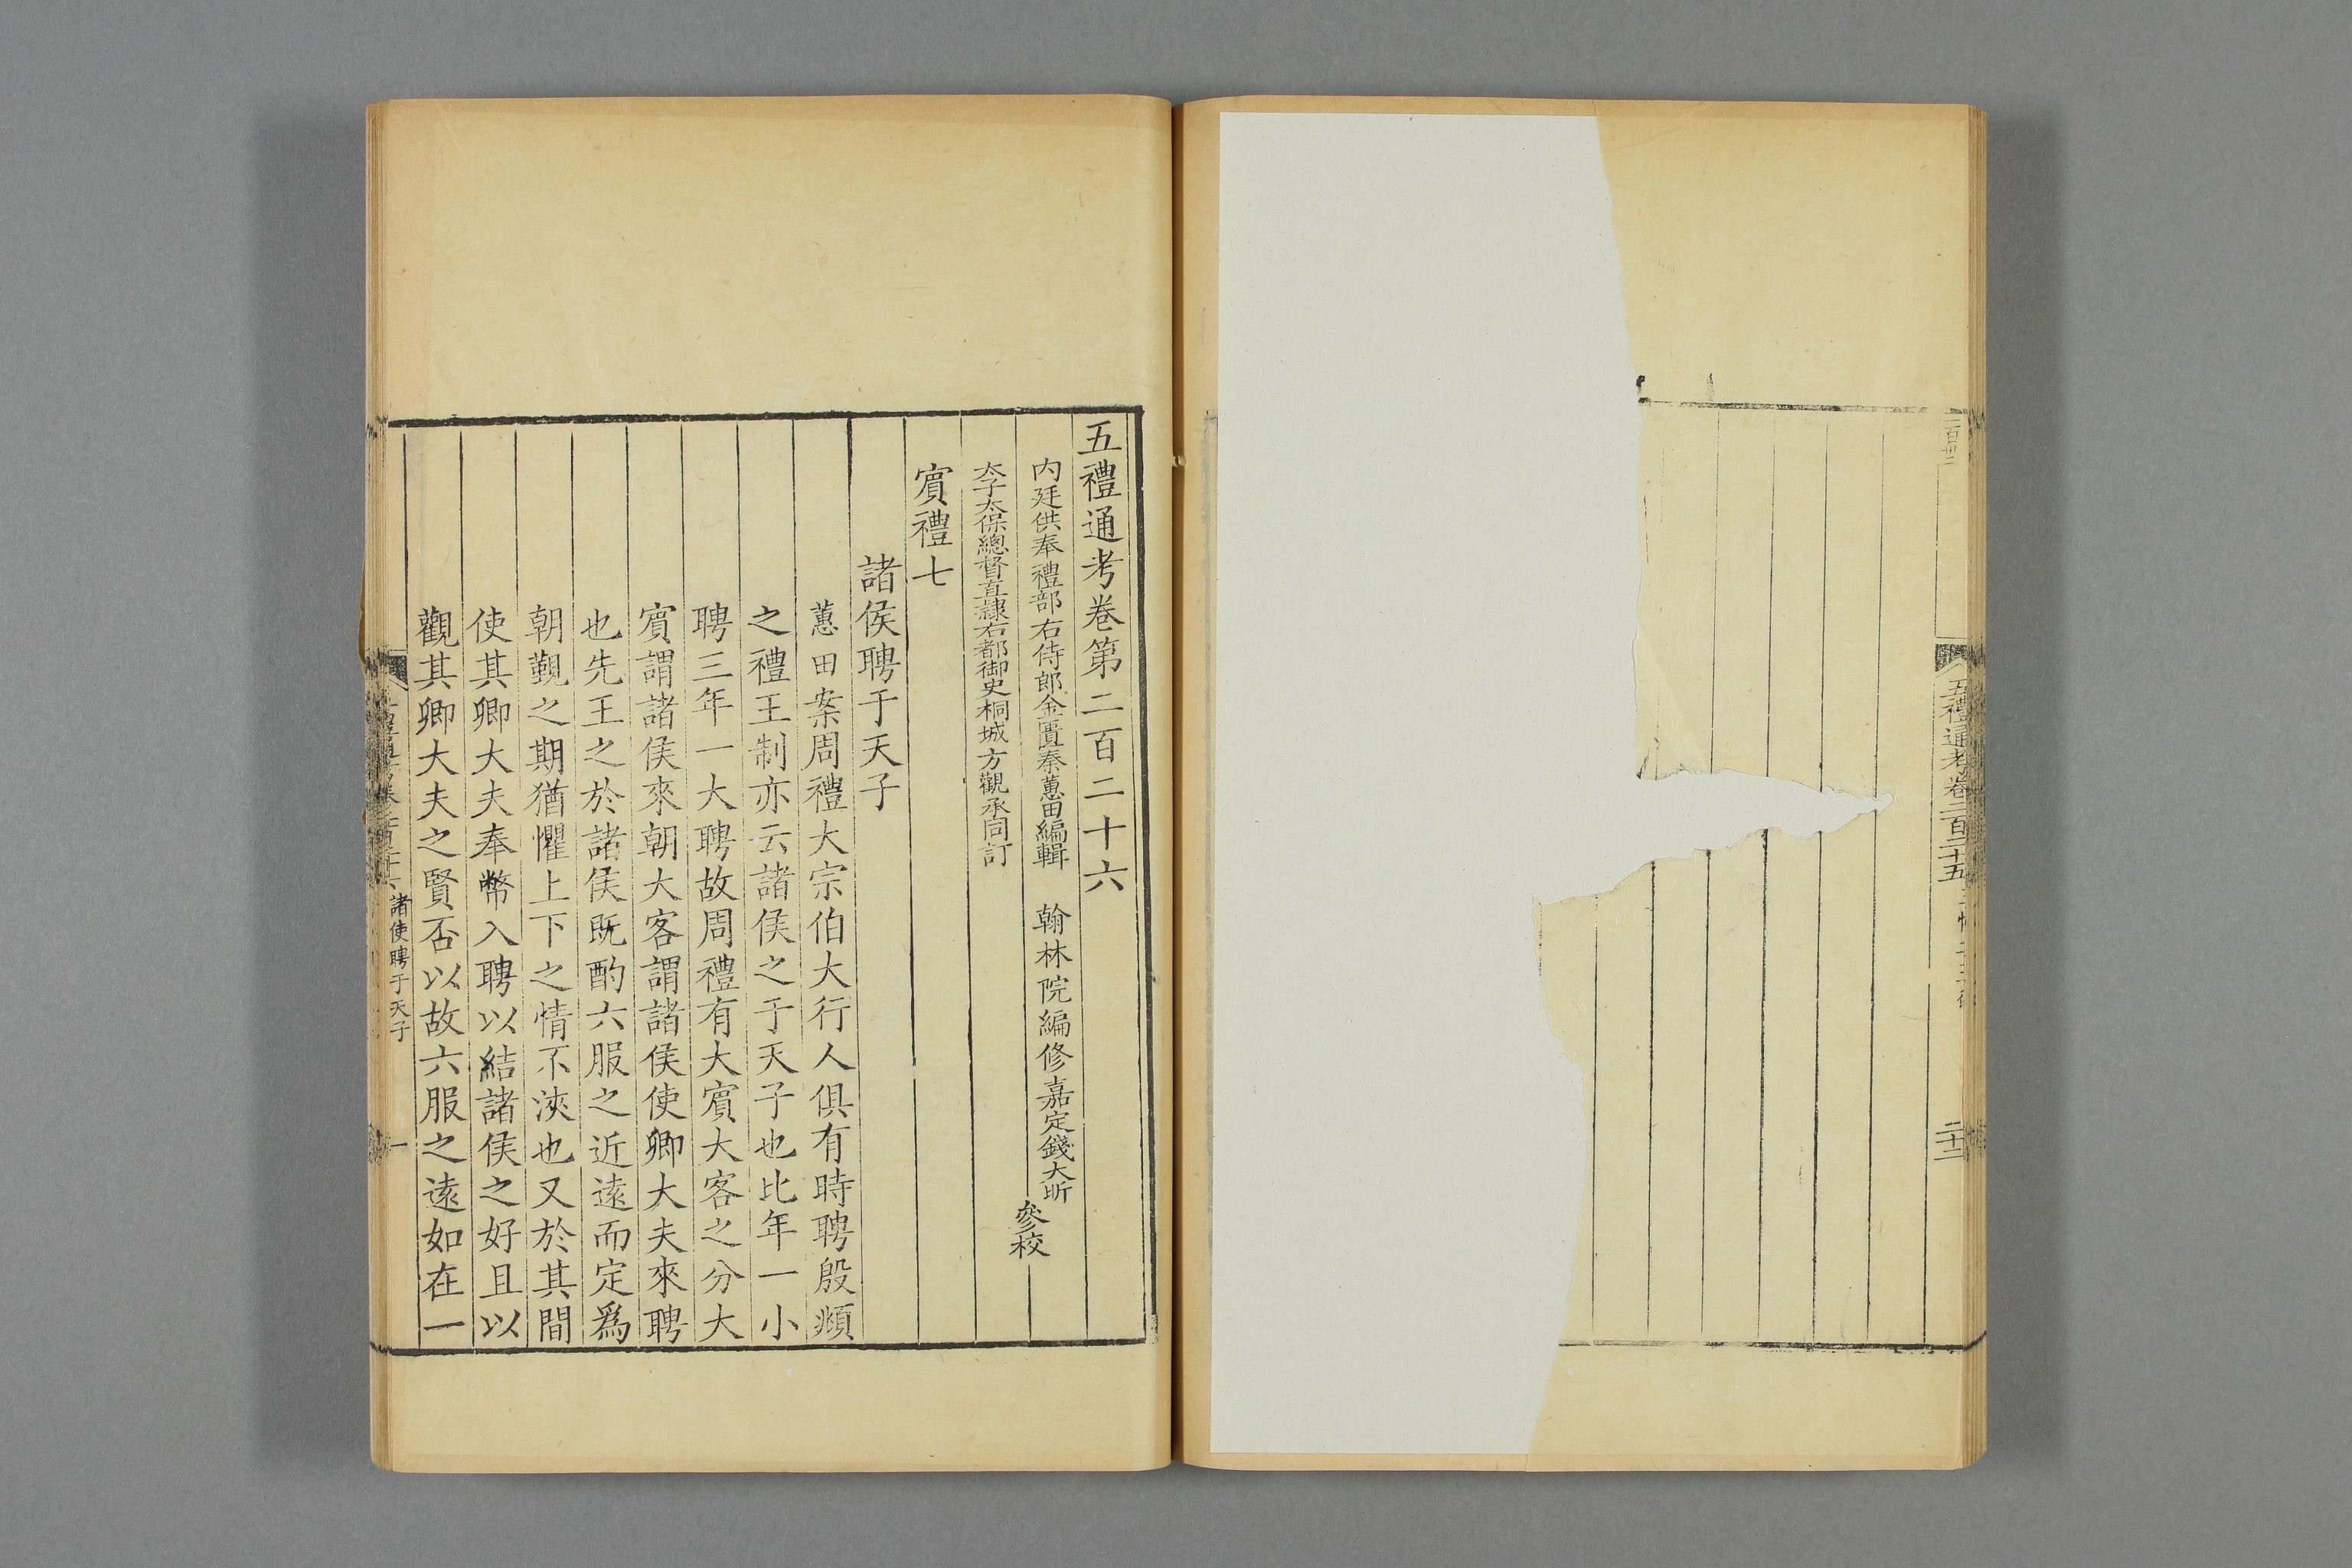 五禮通考卷二百二十五
二十二
五禮通考卷第二百二十六
内廷供奉禮部右侍郎金匱秦蕙田編輯　翰林院編修嘉定錢大昕
太子太保總督直隸右都御史桐城方觀承同訂
參校
賓禮七
諸侯聘于天子
蕙田案周禮大宗伯大行人俱有時聘殷頫
之禮王制亦云諸侯之于天子也比年一小
聘三年一大聘故周禮有大賓大客之分大
賓謂諸侯來朝大客謂諸侯使卿大夫來聘
也先王之於諸侯既酌六服之近遠而定爲
朝覲之期猶懼上下之情不浹也又於其間
使其卿大夫奉幣入聘以結諸侯之好且以
觀其卿大夫之賢否以故六服之遠如在一
諸侯聘于天子
一